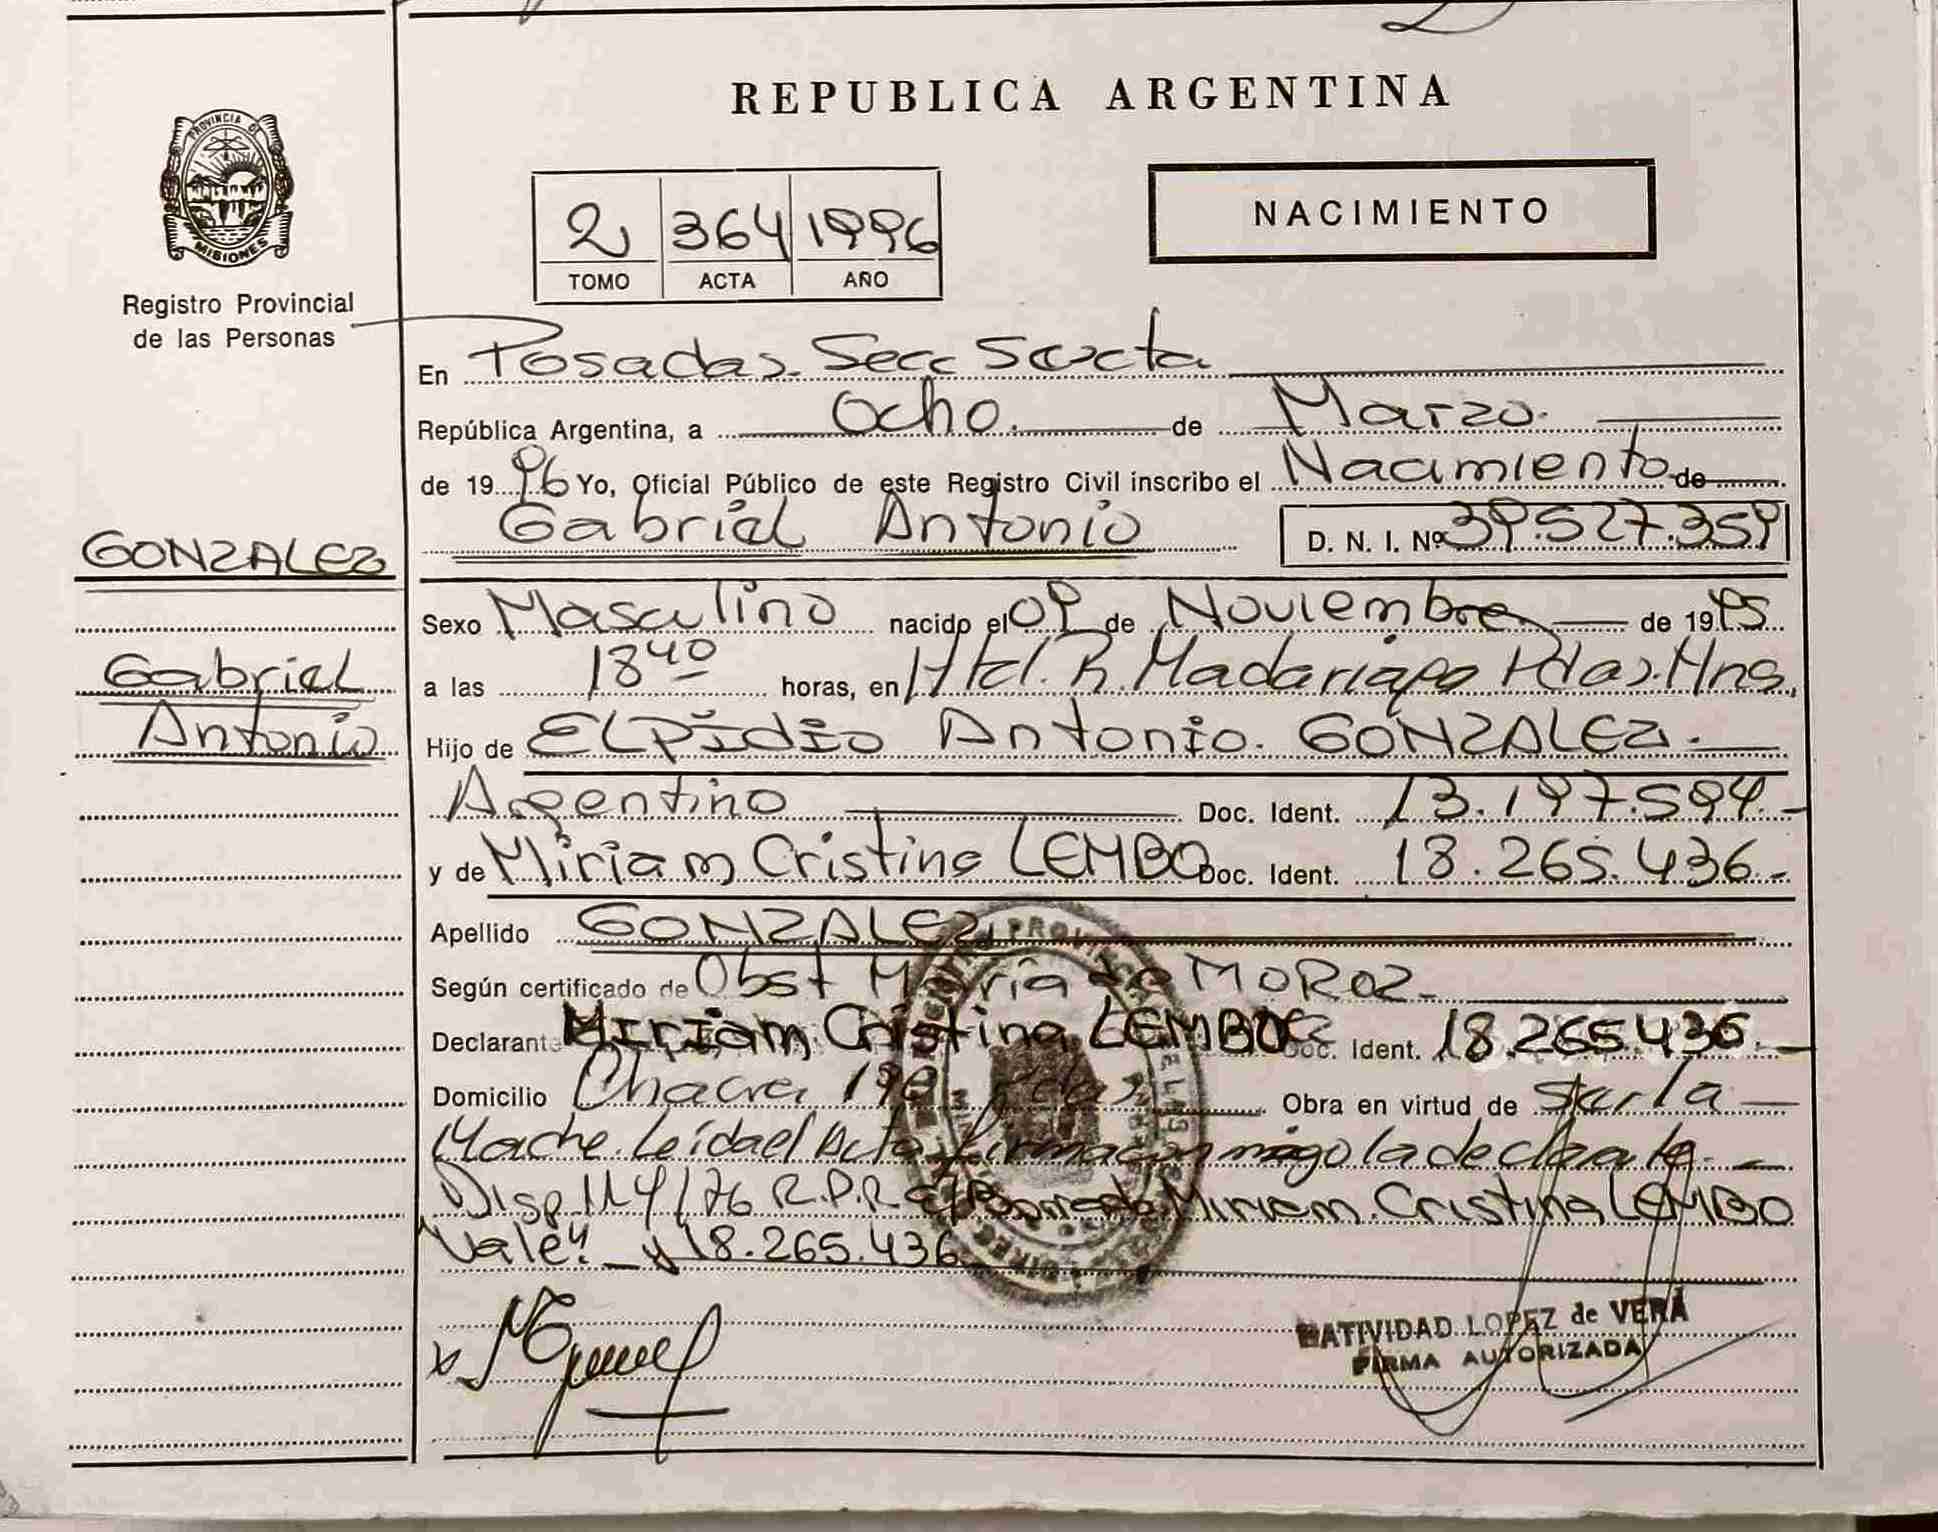 REPUBLICA ARGENTINA
PROVINCIA DE
MISIONES
Registro Provincial
de las Personas
2 364 1996
TOMO ACTA AÑO
NACIMIENTO
En Posadas. Secc Sexta
República Argentina, a Ocho. de Marzo.
de 1996 Yo, Oficial Público de este Registro Civil inscribo el Nacimiento de
Gabriel Antonio D. N. I. Nº 39.527.359
GONZALEZ
Gabriel
Antonio
Sexo Masculino nacido el 09 de Noviembre de 1995
a las 18 40 horas, en Htal. R. Madariaga Pdas. Mnes.
Hijo de ELPidio Antonio. GONZALEZ.
Argentino Doc. Ident. 13.197.594.-
y de Miriam Cristina LEMBO Doc. Ident. 18.265.436.-
Apellido GONZALEZ
Según certificado de Obst María de MOROZ
Declarante Miriam Cristina LEMBO Doc. Ident. 18.265.436.
Domicilio Chacra 190 Pdas Obra en virtud de ser la
Madre. Leída el Acta, firma conmigo la declarante.
Disp. 114/76 R.P.P. Borrado. Miriam. Cristina LEMBO
Vale". y 18.265.436
NATIVIDAD LOPEZ de VERA
FIRMA AUTORIZADA